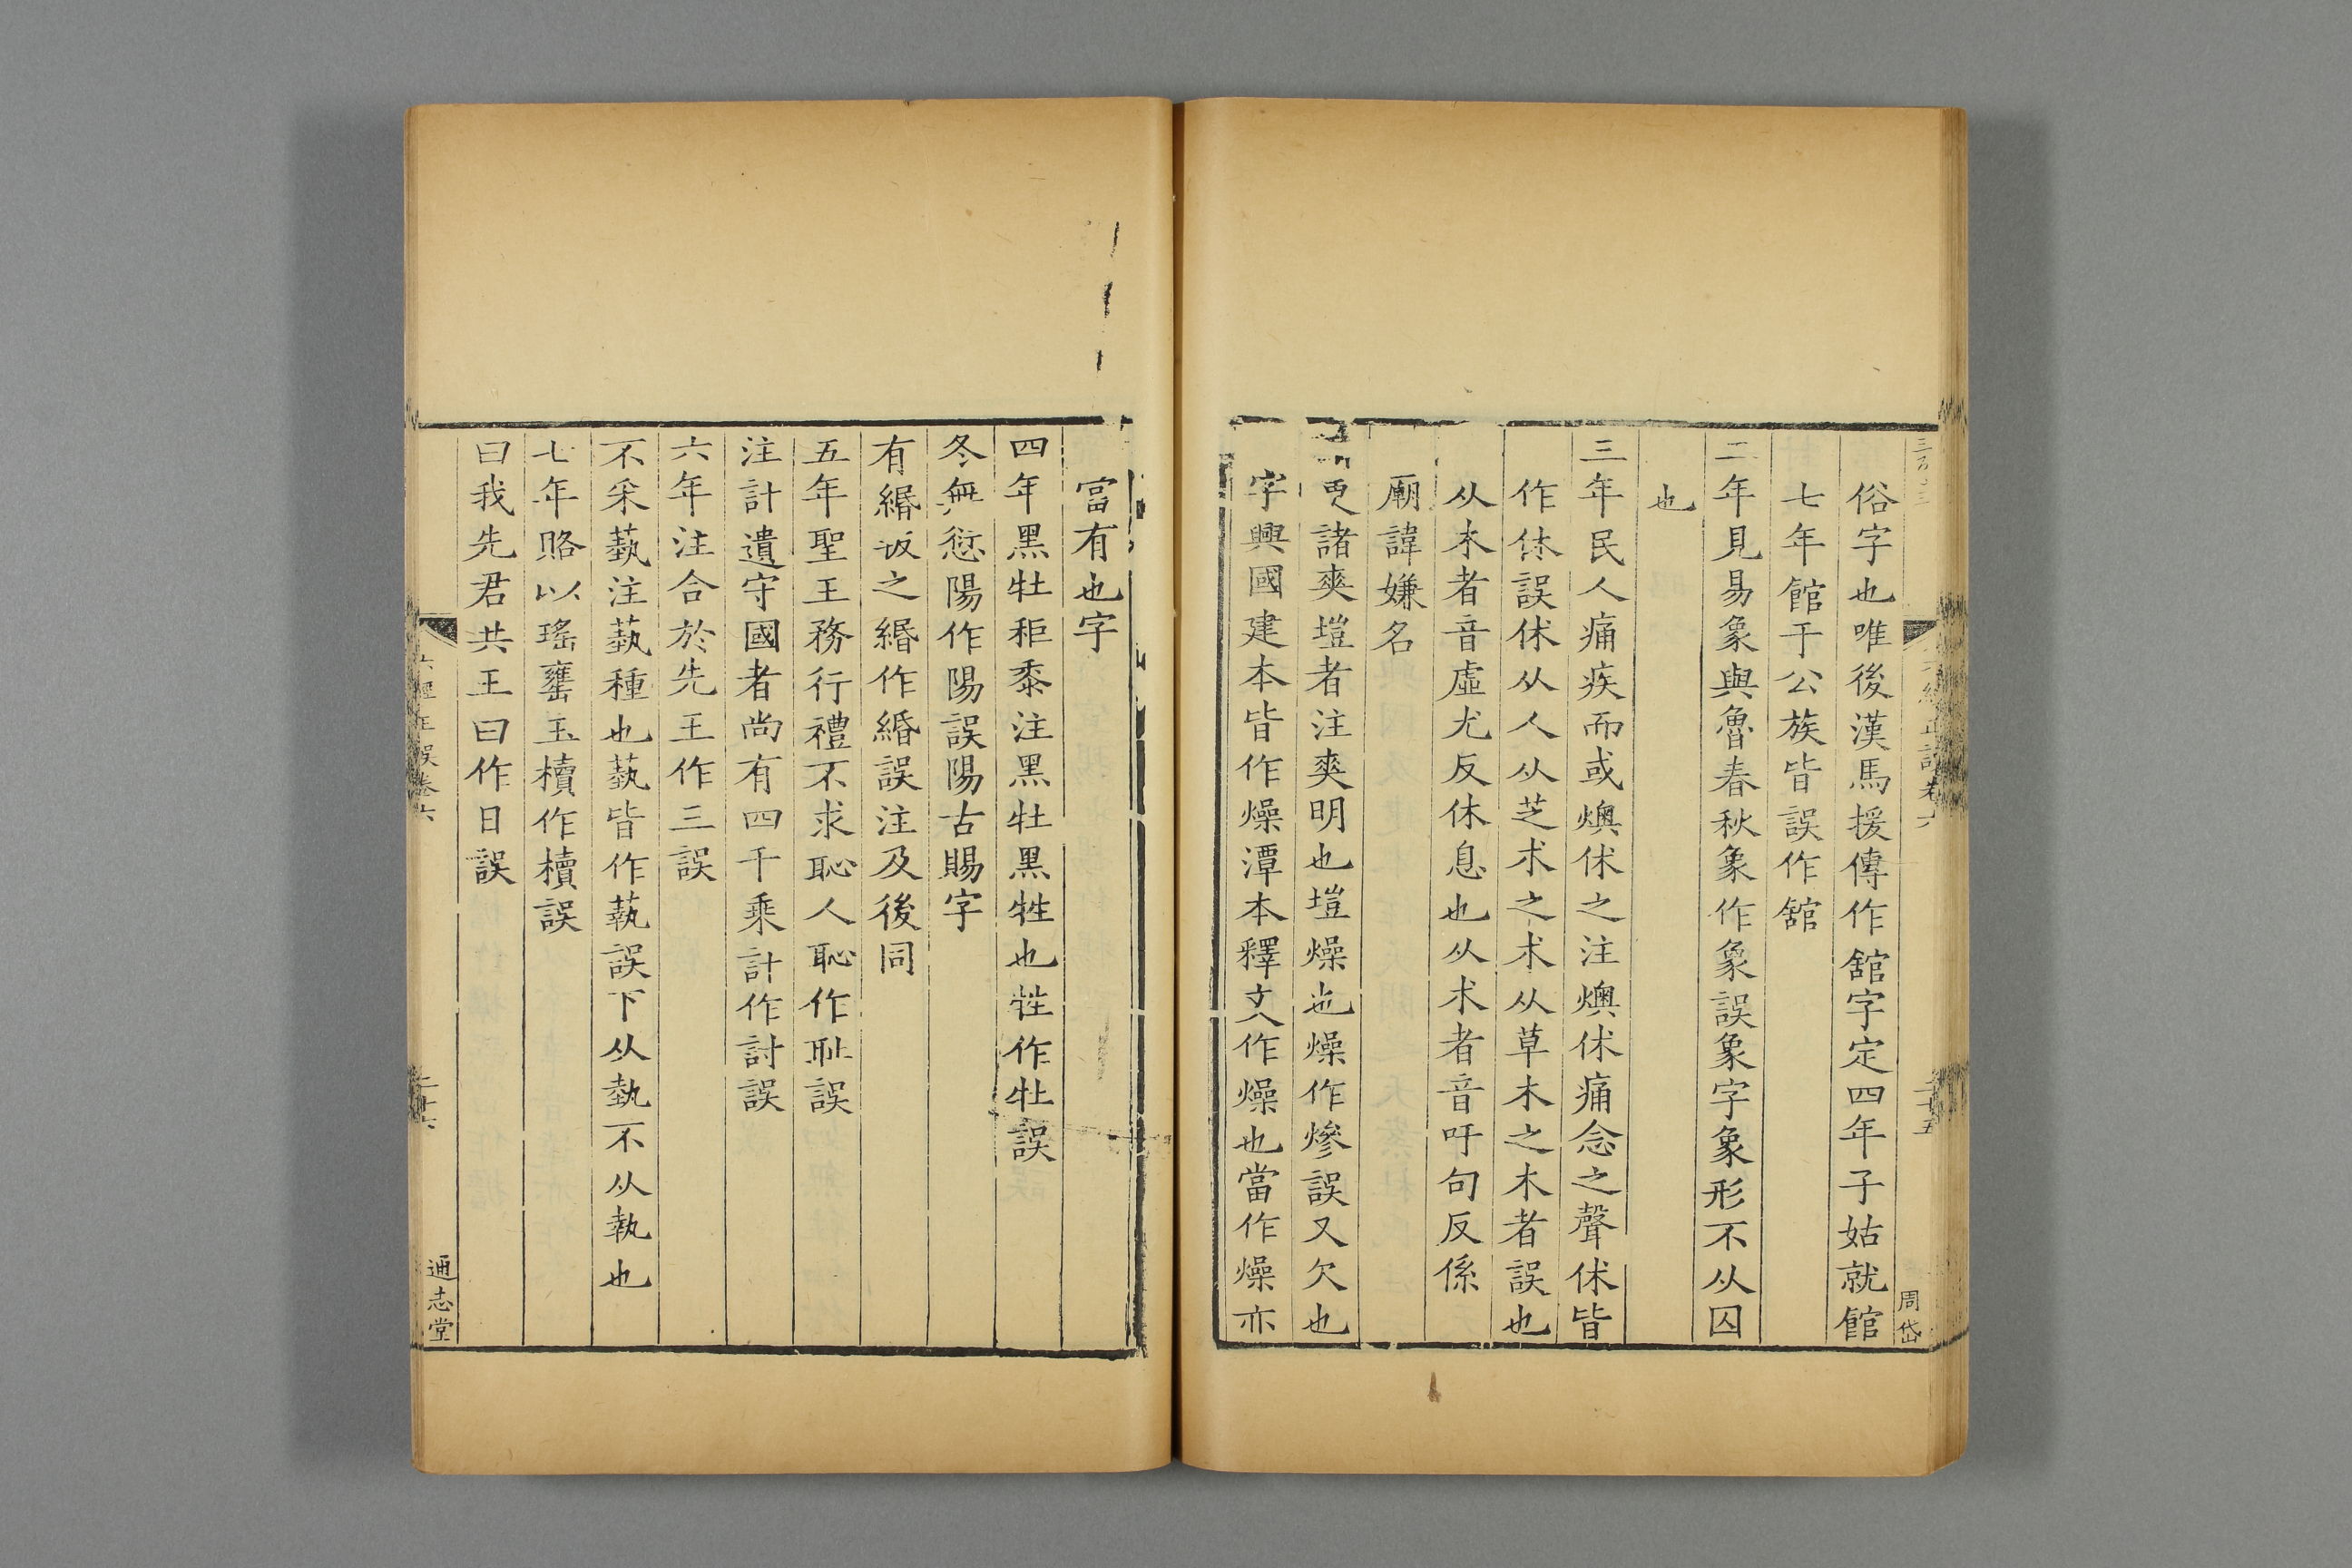 俗字也唯後漢馬援傳作舘字定四年子姑就館
七年館于公族皆誤作舘
二年見易象與魯春秋象作𧰼誤象字象形不从囚
也
三年民人痛疾而或燠休之注燠休痛念之聲休皆
作休誤休从人从芝朮之朮从草木之木者誤也
从木者音虛尤反休息也从朮者音吁句反係
廟諱嫌名
更諸爽塏者注爽明也塏燥也燥作㷟誤又欠也
字興國建本皆作燥潭本釋文作燥也當作燥亦
周岱
富有也字
四年黑牡秬黍注黑牡黑牲也牲作牡誤
冬無愆陽作陽誤陽古賜字
有緡叛之緡作緍誤注及後同
五年聖王務行禮不求恥人恥作耻誤
注計遺守國者尚有四千乘計作討誤
六年注合於先王作三誤
不采蓺注蓺種也蓺皆作蓻誤下从埶不从執也
七年賂以瑤罋玉櫝作櫝誤
曰我先君共王曰作日誤
六經正誤卷六
二十六
通志堂